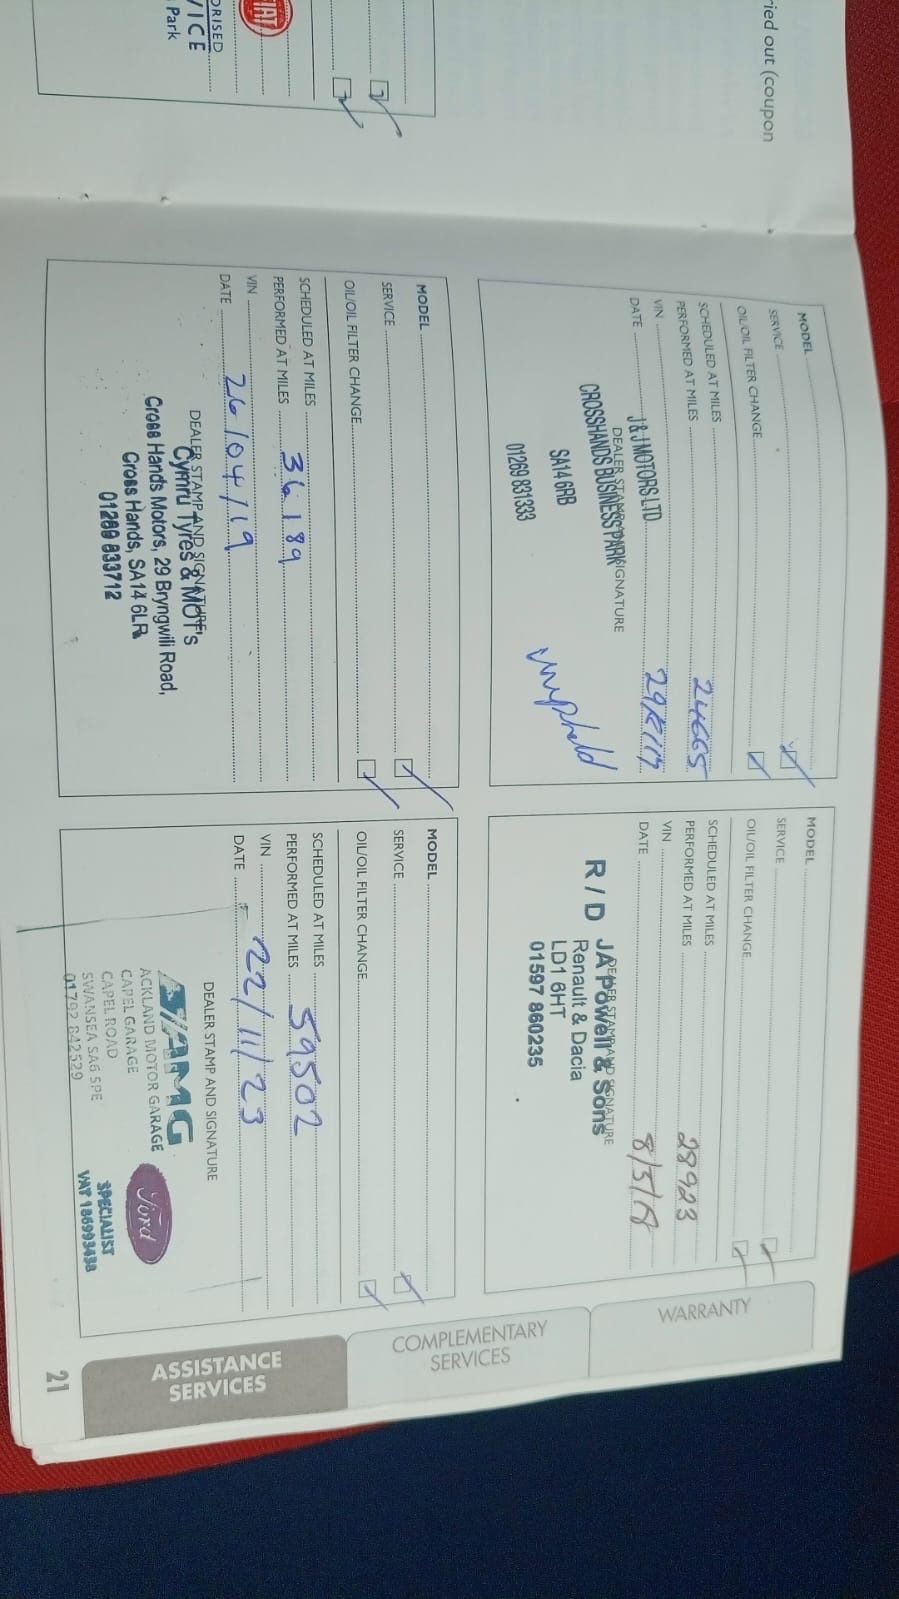 ried out (coupon
ORISED
VICE
Park
FIAT
MODEL
SERVICE
OIL/OIL FILTER CHANGE
SCHEDULED AT MILES
PERFORMED AT MILES 24665
VIN
DATE
DEALER STAMP AND SIGNATURE
J & J MOTORS LTD
CROSSHANDS BUSINESS PARK
SA14 6RB
01269 831333
MODEL
SERVICE
OIL/OIL FILTER CHANGE
SCHEDULED AT MILES
PERFORMED AT MILES 28923
VIN
DATE 8/5/18
DEALER STAMP AND SIGNATURE
R / D JA Powell & Sons
Renault & Dacia
LD1 6HT
01597 860235
MODEL
SERVICE
OIL/OIL FILTER CHANGE
SCHEDULED AT MILES
PERFORMED AT MILES 36189
VIN
DATE 26/04/19
DEALER STAMP AND SIGNATURE
Cymru Tyres & MOT's
Cross Hands Motors, 29 Bryngwili Road,
Cross Hands, SA14 6LR
01269 833712
MODEL
SERVICE
OIL/OIL FILTER CHANGE
SCHEDULED AT MILES
PERFORMED AT MILES 59502
VIN
DATE 22/11/23
DEALER STAMP AND SIGNATURE
AMG
ACKLAND MOTOR GARAGE
CAPEL GARAGE
CAPEL ROAD
SWANSEA SA6 5PE
01792 842529
Ford
SPECIALIST
VAT 186993438
WARRANTY
COMPLEMENTARY
SERVICES
ASSISTANCE
SERVICES
21